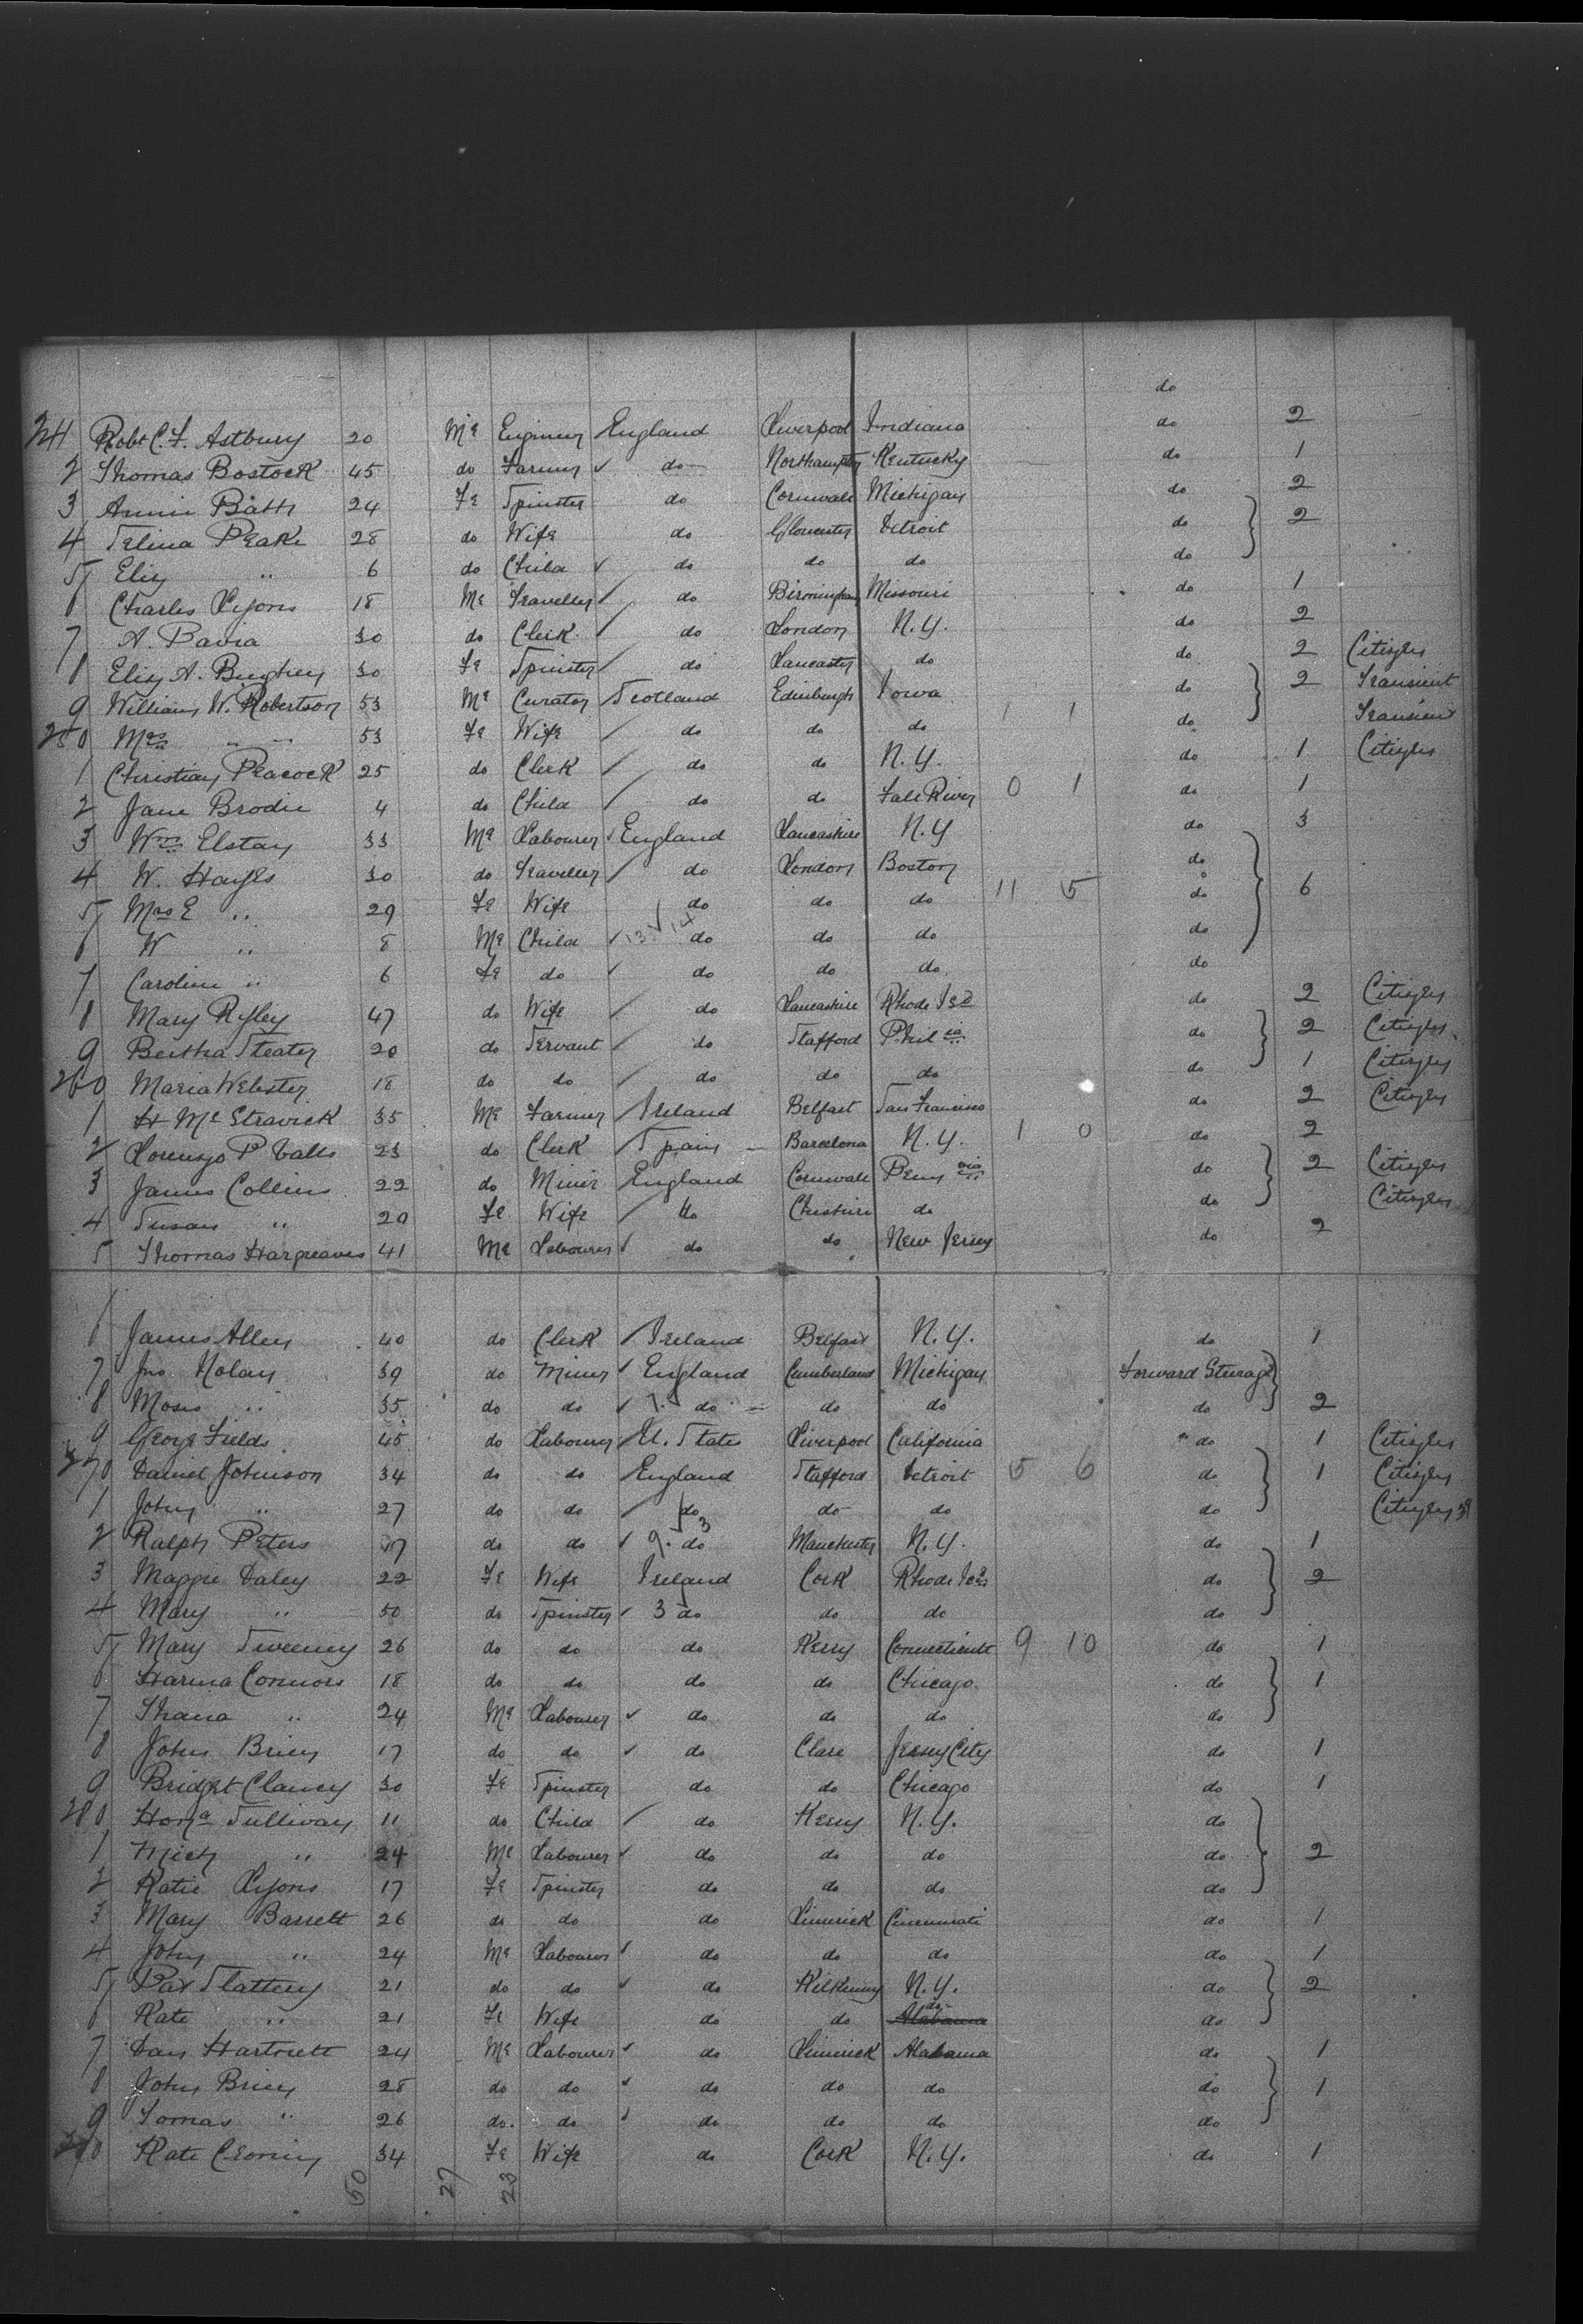 do
241 Robt C. F. Astbury 20 Me Engineer England Liverpool Indiana do 2
2 Thomas Bostock 45 do Farmer do Northampton Kentucky do 1
3 Annie Batts 24 Fe Spinster do Cornwall Michigan do 2
4 Selina Peake 28 do Wife do Gloucester Detroit do 2
5 Eliz " 6 do Child do do do do
6 Charles Lyons 18 Me Traveller do Birmingham Missouri do 1
7 A. Bavia 30 do Clerk do London N.Y. do 2
8 Eliz A. 30 Fe Spinster do Lancaster do do 2 Citizen
9 William W. Robertson 53 Me Curator Scotland Edinburgh Iowa do 2 Transient
250 Mrs " " 53 Fe Wife do do do 1 1 do Transient
1 Christian Peacock 25 do Clerk do do N.Y. do 1 Citizen
2 Jane Brodie 4 do Child do do Fall River 0 1 do 1
3 Wm Elstay 33 Me Labourer England Lancashire N.Y do 3
4 W. Hayes 30 do Traveller do London Boston do
5 Mrs E " 29 Fe Wife do do do 11 5 do 6
6 W " 8 Me Child 13 14 do do do do
7 Caroline " 6 Fe do do do do do
8 Mary Ryley 47 do Wife do Lancashire Rhode Isd do 2 Citizen
9 Bertha Steater 20 do Servant do Stafford Phila do 2 Citizen
260 Maria Webster 18 do do do do do do 1 Citizen
1 H Mc Stravick 35 Me Farmer Ireland Belfast San Francisco do 2 Citizen
2 Lorenzo P Valls 23 do Clerk Spain Barcelona N.Y. 1 0 do 2
3 James Collins 22 do Miner England Cornwall Penn via do 2 Citizen
4 Susan " 20 Fe Wife do Cheshire do do Citizen
5 Thomas Hargreaves 41 Me Labourer do do New Jersey do 2
6 James Allen 40 do Clerk Ireland Belfast N.Y. do 1
7 Jno Nolan 39 do Miner England Cumberland Michigan Forward Steerage
8 Moses " 35 do do 7. do do do do 2
9 George Fields 45 do Labourer U. States Liverpool California do 1 Citizen
270 Daniel Johnson 34 do do England Stafford Detroit 5 6 do 1 Citizen
1 John " 27 do do do do do do Citizen
2 Ralph Peters 47 do do 9. do 3 Manchester N.Y. do 1
3 Maggie Daley 22 Fe Wife Ireland Cork Rhode Isd do 2
4 Mary " 50 do Spinster 3 do do do do
5 Mary Sweeney 26 do do do Kerry Connecticut 9 10 do 1
6 Connors 18 do do do do Chicago do 1
7 " 24 Me Labourer do do do do
8 John Brien 17 do do do Clare Jersey City do 1
9 Bridget Clancy 30 Fe Spinster do do Chicago do 1
280 Hona Sullivan 11 do Child do Kerry N.Y. do
1 Mich " 24 Me Labourer do do do do 2
2 Katie Lyons 17 Fe Spinster do do do do
3 Mary Barrett 26 do do do Limerick Cincinnati do 1
4 John " 24 Me Labourer do do do do 1
5 Pat Slattery 21 do do do Kilkenny N.Y. do 2
6 Kate " 21 Fe Wife do do Alabama do do
7 Dan Hartnett 24 Me Labourer do Limerick Alabama do 1
8 John Brien 28 do do do do do do 1
9 Tomas " 26 do. do do do do do
290 Kate Cronin 34 Fe Wife do Cork N.Y. do 1
50 27 23